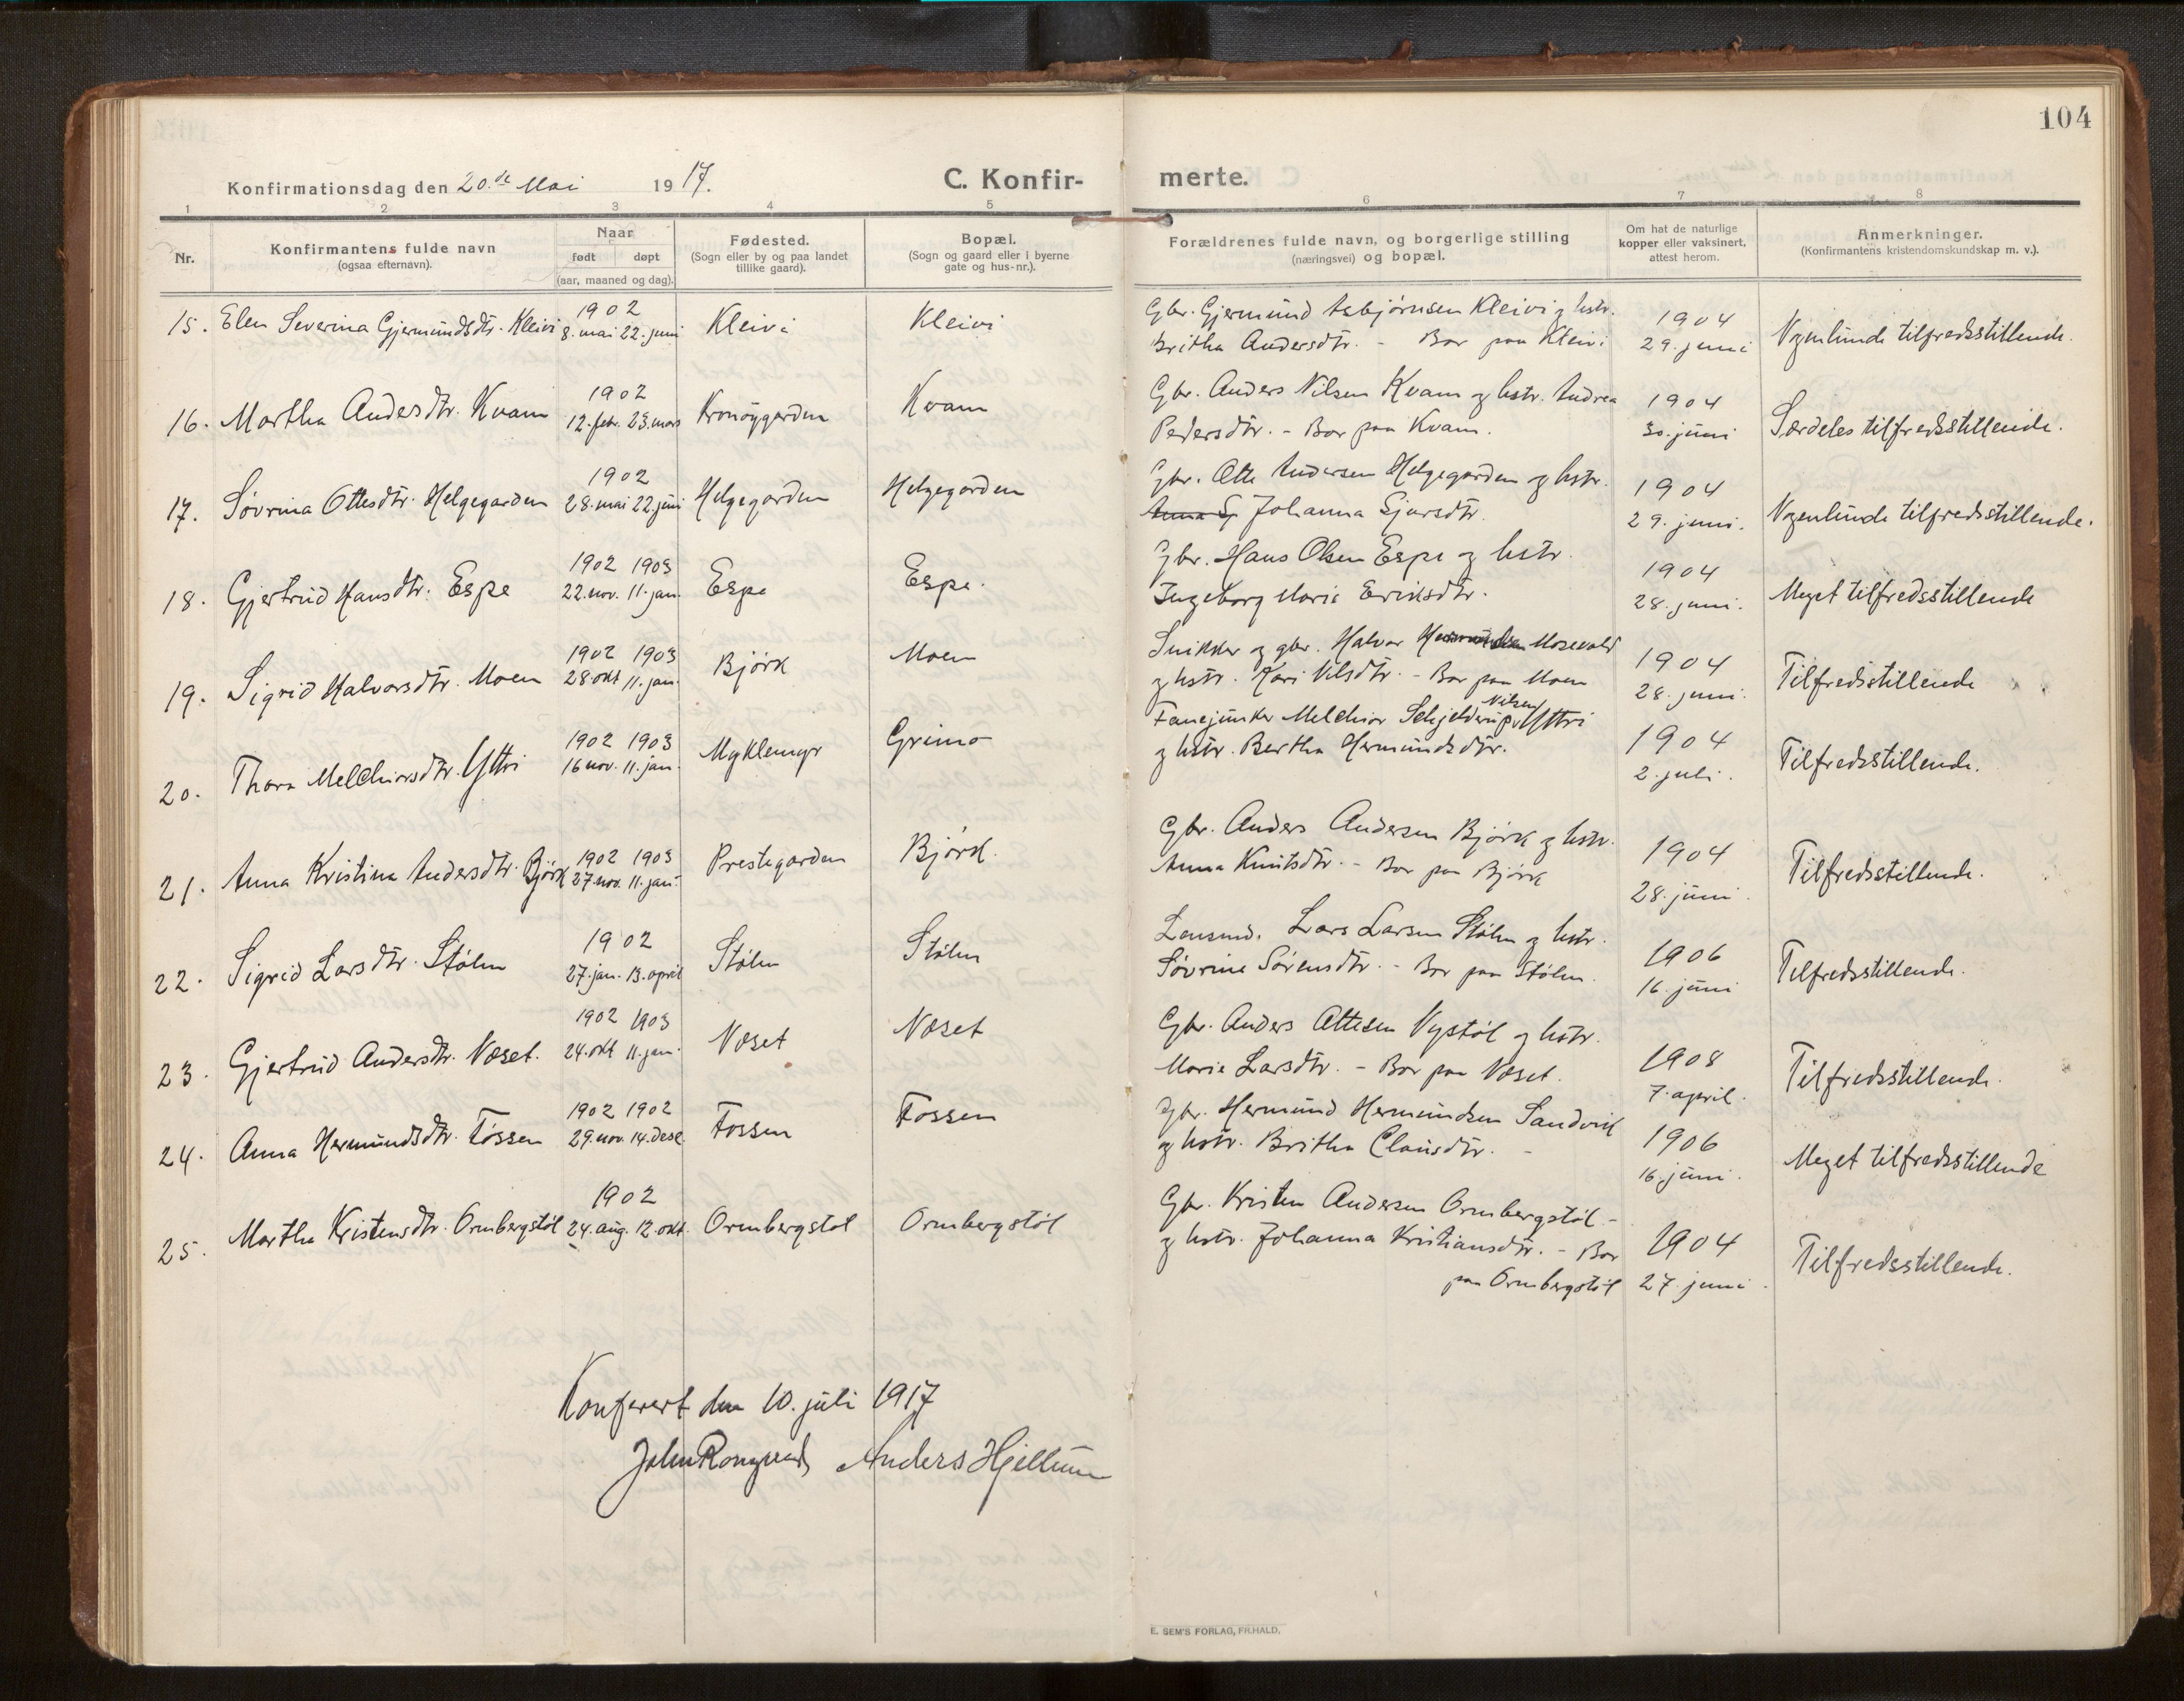 104
Konfirmationsdag den 20.de Mai 1917.
C. Konfir- merte.
1 2 3 4 5 6 7 8
Nr.
Konfirmantens fulde navn
(ogsaa efternavn).
Naar
født døpt
(aar, maaned og dag).
Fødested.
(Sogn eller by og paa landet
tillike gaard).
Bopæl.
(Sogn og gaard eller i byerne
gate og hus-nr.).
Forældrenes fulde navn, og borgerlige stilling
(næringsvei) og bopæl.
Om hat de naturlige
kopper eller vaksinert,
attest herom.
Anmerkninger.
(Konfirmantens kristendomskundskap m. v.).
1902 Gbr. Gjermund Asbjørnsen Kleivi og hstr. 1904
15. Elen Severina Gjermundsdtr. Kleivi 8. mai 22. juni Kleivi Kleivi Britha Andersdtr. - Bor paa Kleivi 29. juni Nogenlunde tilfredsstillende.
1902 Gbr. Anders Nilsen Kvam og hstr. Andrea 1904
16. Martha Andersdtr. Kvam 12. febr. 23. mars Kronøygarden Kvam Pedersdtr. - Bor paa Kvam. 30. juni Særdeles tilfredsstillende.
1902 Gbr. Otte Andersen Helgegarden og hstr. 1904
17. Søvrina Ottesdtr. Helgegarden 28. mai 22. juni Helgegarden Helgegarden Anna Gj Johanna Gjursdtr. 29. juni. Nogenlunde tilfredsstillende.
1902 1903 Gbr. Hans Olsen Espe og hstr. 1904
18. Gjertrud Hansdtr. Espe 22. nov. 11. jan. Espe Espe. Ingeborg Marie Eriksdtr. 28. juni. Meget tilfredsstillende
1902 1903 Snikker og gbr. Halvor Mosevold 1904
19. Sigrid Halvorsdtr. Moen 28. okt 11. jan. Bjørk Moen og hstr. Kari Nilsdtr. - Bor paa Moen 28. juni. Tilfredsstillende
1902 1903 Fanejunker Melchior Schjelderup Nilsen Yttri 1904
20. Thora Melchiorsdtr. Yttri 16 nov. 11. jan. Myklemyr Grimo og hstr. Bertha Hermundsdtr. 2. juli. Tilfredsstillende.
1902 1903 Gbr. Anders Andersen Bjørk og hstr. 1904
21. Anna Kristina Andersdtr. Bjørk 27. nov. 11. jan. Prestegarden Bjørk. Anna Knutsdtr. - Bor paa Bjørk 28. juni. Tilfredsstillende.
1902 Lensmd. Lars Larsen Stølen og hstr. 1906
22. Sigrid Larsdtr. Stølen 27. jan. 13. april Stølen Stølen Søvrine Sørensdtr. - Bor paa Stølen. 16. juni Tilfredsstillende.
1902 1903 Gbr. Anders Ottesen Nystøl og hstr. 1908
23. Gjertrud Andersdtr. Næset. 24. okt 11. jan. Næset Næset Marie Larsdtr. - Bor paa Næset. 7. april. Tilfredsstillende.
1902 1902 Gbr. Hermund Hermundsen Sandvik 1906
24. Anna Hermundsdtr. Fossen 29. nov. 14. dese. Fossen Fossen og hstr. Britha Clausdtr. - 16. juni. Meget tilfredsstillende
1902 Gbr. Kristen Andersen Ormbergstøl -
25. Martha Kristensdtr. Ormbergstøl 24. aug. 12. okt. Ormbergstøl Ormbergstøl og hstr. Johanna Kristiansdtr. - Bor 1904 Tilfredsstillende.
paa Ormbergstøl 27. juni.
Konferert den 10. juli 1917
John Anders Hjellum
E. SEM'S FORLAG, FR.HALD.